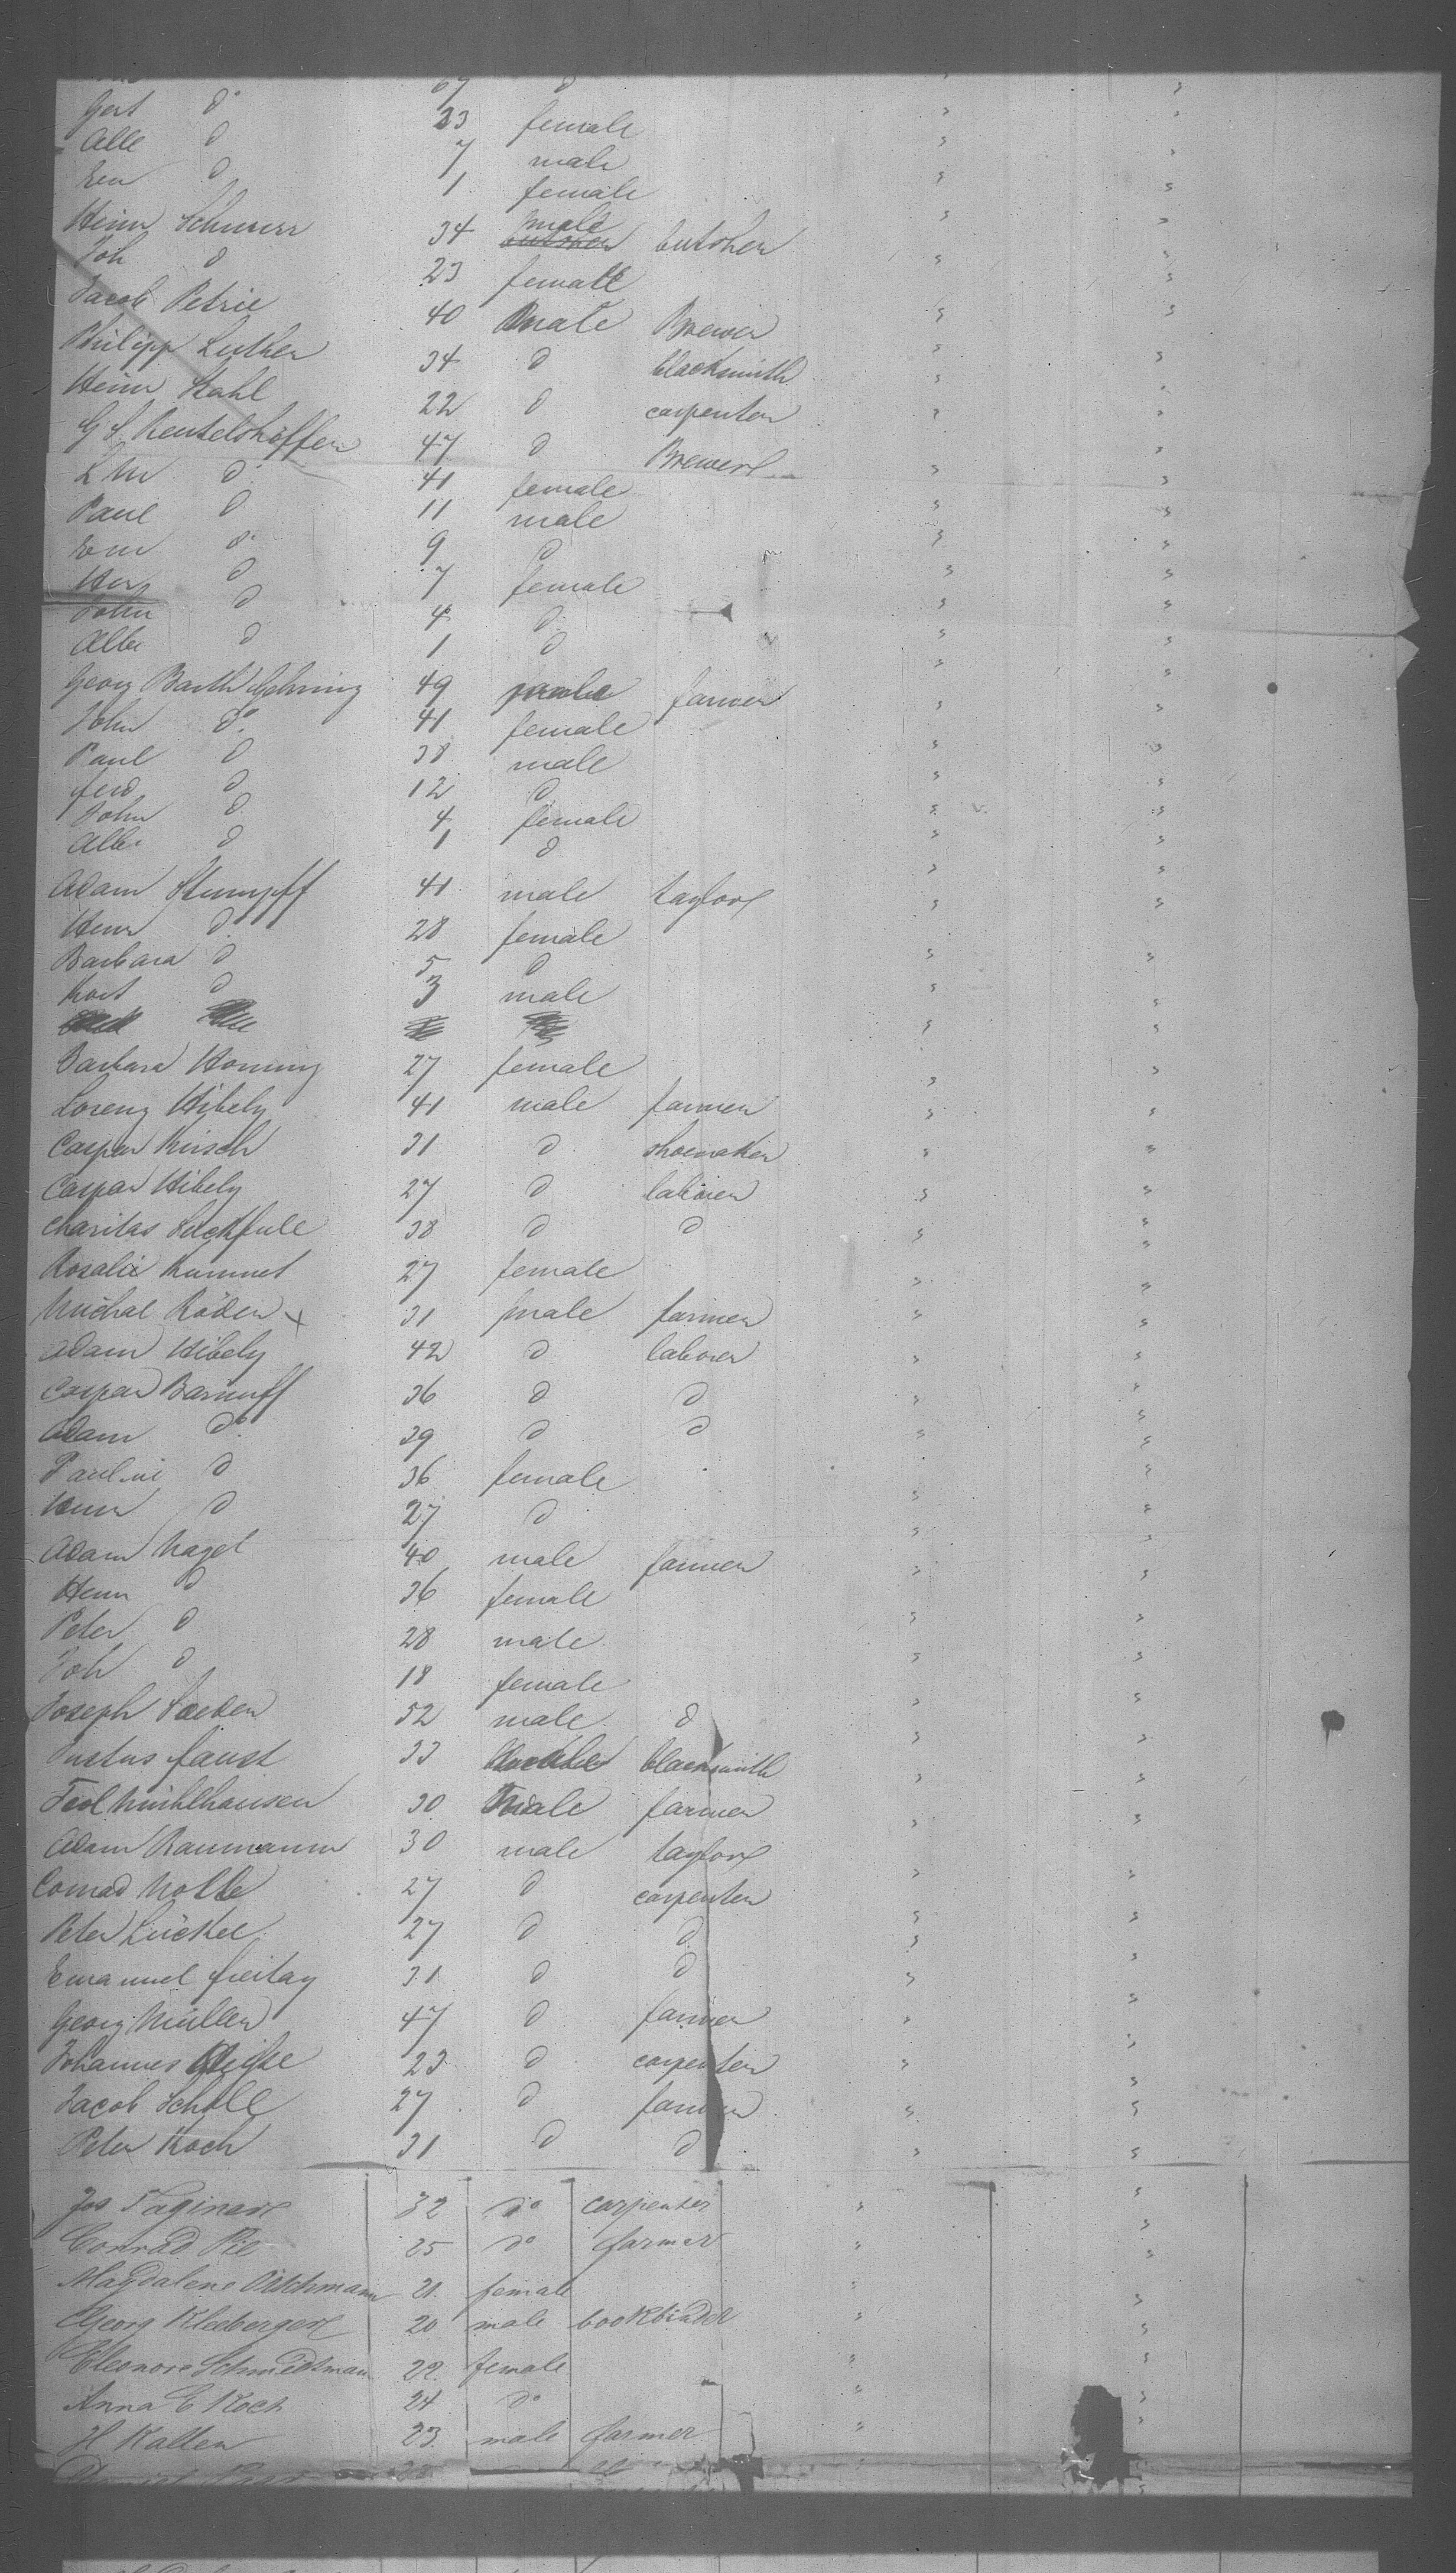 67 d
Gert do 33 female
Alle d 7 male
Em d 1 female
Heinr Schnurr 34 male butcher
Joh d 23 female
Jacob Petrie 40 male Brewer
Philipp Luther 34 d blacksmith
Heinr Stahl 22 d carpenter
G S Rentelshöffer 47 d Brewer
L M d 41 female
Paul d 11 male
Em do 9 d
Her d 7 female
John d 4 d
Albe d 1 d
Georg Barth Gehring 49 male farmer
John do 41 female
Paul d 38 male
ferd d 12 d
John d 4 female
Albe d 1 d
Adam Stumpff 41 male taylor
Henr d 28 female
Barbara d 5 d
d 3 male
Barbara Horning 27 female
Lorenz Hibely 41 male farmer
Caspar Kirsch 31 d shoemaker
Caspar Hibely 27 d laborer
Charitas 38 d d
Rosalie Kummet 27 female
Michal Röder x 31 male farmer
Adam Hibely 42 d laborer
Caspar Barnuff 36 d d
Adam do 39 d d
Pauline d 36 female
Henr d 27 d
Adam Nagel 40 male farmer
Henr d 36 female
Peter d 28 male
Joh d 18 female
Joseph 52 male d
Justus faust 33 blacksmith
Mühlhausen 30 male farmer
Adam Baumann 30 male taylor
Conrad Nolte 27 d carpenter
Peter Lückel 27 d d
Emanuel freitag 31 d d
Georg Müller 47 d farmer
Johannes 23 d carpenter
Jacob Scholl 27 d farmer
Peter Koch 31 d d
Jos 32 do carpenter
Conrad 25 do farmer
Magdalene 21 female
Georg Kleeberger 20 male bookbinder
Eleonore Schmidtman 22 female
Anna C Koch 24 do
H Kalten 23 male farmer